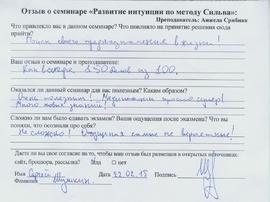 Отзыв о семинаре «Развитие интуиции по методу Сильва»:
Преподаватель: Анжела Срибная
Что привлекло вас в данном семинаре? Что повлияло на принятие решения сюда
прийти?
Поиск своего предназначения в жизни!
Ваш отзыв о семинаре и преподавателе:
150 баллов из 100.
Оказался ли данный семинар для вас полезным? Каким образом?
Очень полезным! Медитации просто супер!
Много новых знаний!
Сложно ли вам было сдавать экзамен? Ваши ощущения после экзамена? Что вы
поняли, что осознали про себя?
Не сложно! Ощущения самые не вероятные!
Даёте ли вы свое согласие на то, чтобы ваш отзыв был размещен в открытых источниках:
сайт, брошюра, рассылка? Да Нет
Имя Сергей Дата 22.02.15 Подпись
Фамилия